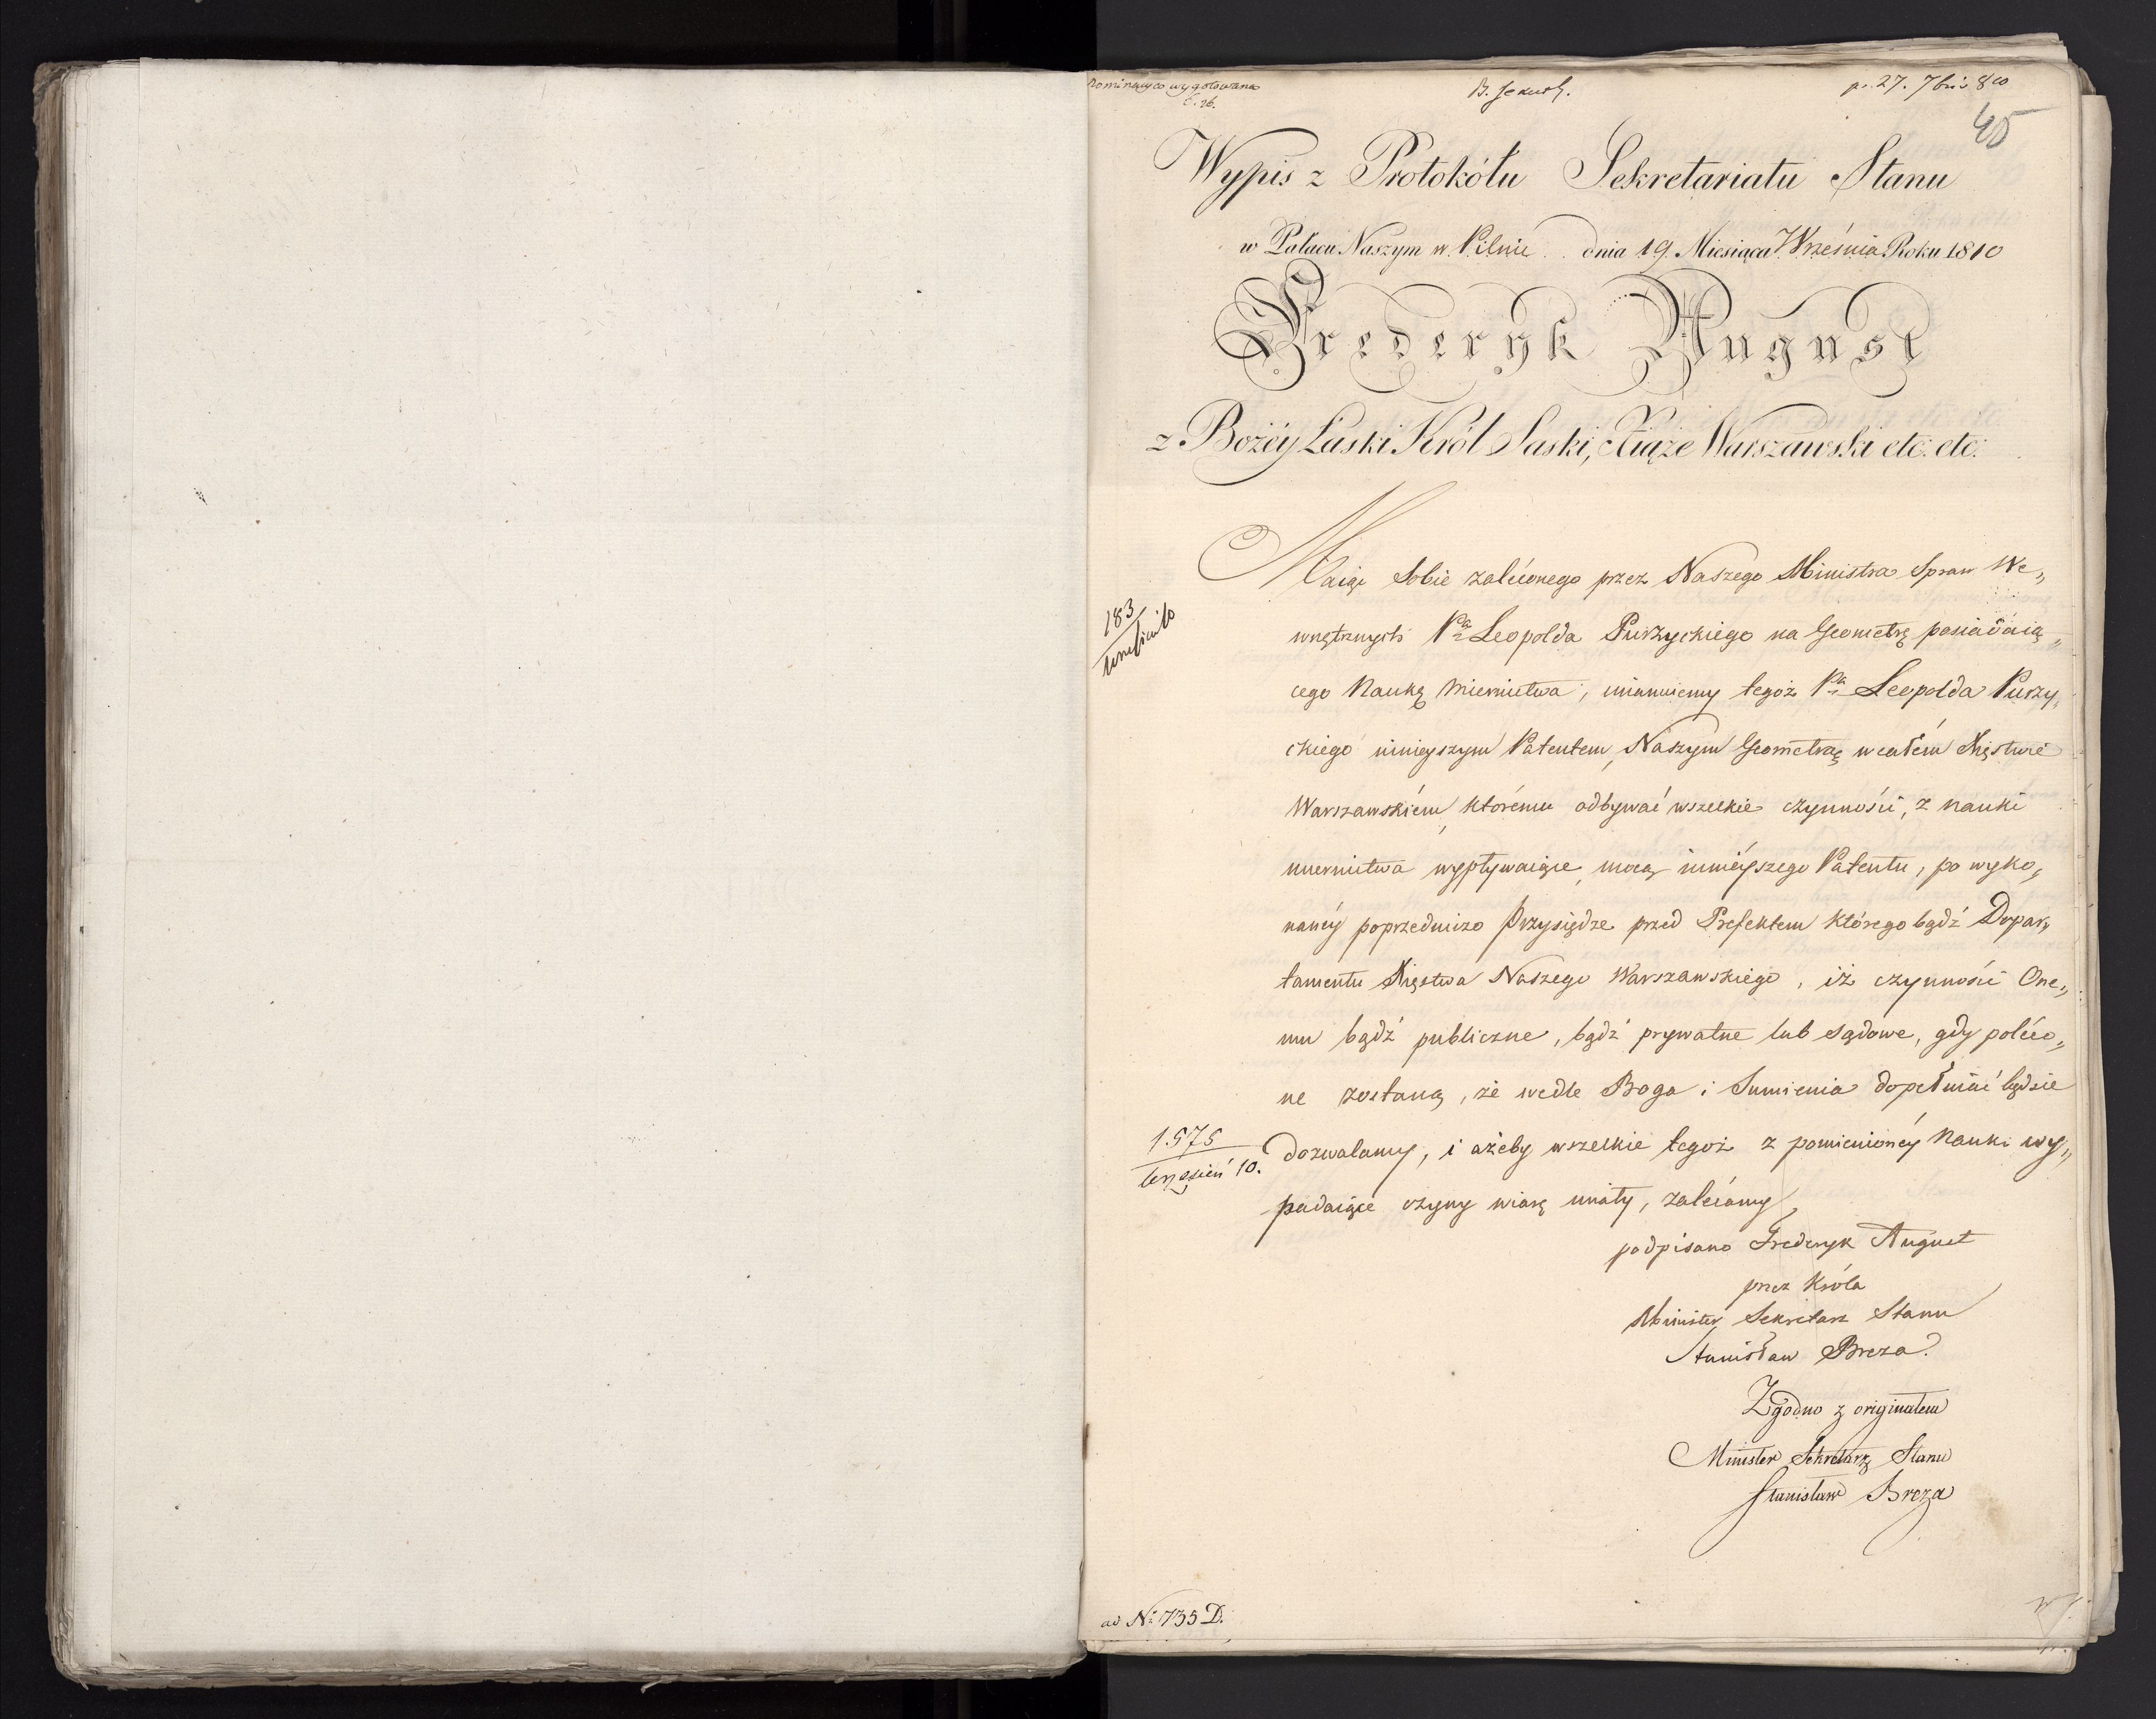 Nominacya wygotowana
p. 27. 7bris 810
45
Wypis z Protokółu Sekretariatu Stanu
w Pałacu Naszym w Pilnic dnia 19 Miesiąca Września Roku 1810
Frederyk August
z Bożéy Łaski Król Saski, Xiąże Warszawski etc: etc:
Maiąc sobie zaleconego przez Naszego Ministra Spraw We„
wnętrznych Pa Leopolda Purzyckiego na Geometrę posiadaią„
cego Naukę miernictwa, mianuiemy tegoż Pa Leopolda Purzy„
ckiego ninieyszym Patentem, Naszym Geometrą w całém Xięstwie
Warszawskiém, któremu odbywać wszelkie czynności, z nauki
miernictwa wypływaiące, mocą ninieyszego Patentu, po wyko„
nanéy poprzedniczo Przysiędze przed Prefektem którego bądź Depar„
tamentu Xięstwa Naszego Warszawskiego, iż czynności One„
mu bądź publiczne, bądź prywatne lub sądowe, gdy poleco„
ne zostaną, że wedle Boga i Sumienia dopełniać będzie
dozwalamy, i ażeby wszelkie tegoż z pomienionéy Nauki wy„
padaiące czyny wiarę miały, zalecamy
podpisano Frederyk August
przez Króla
Minister Sekretarz Stanu
Stanisław Breza.
Zgodno z originałem
Minister Sekretarz Stanu
Stanisław Breza
183
1575
wrzesień 10.
ad No 735 D.